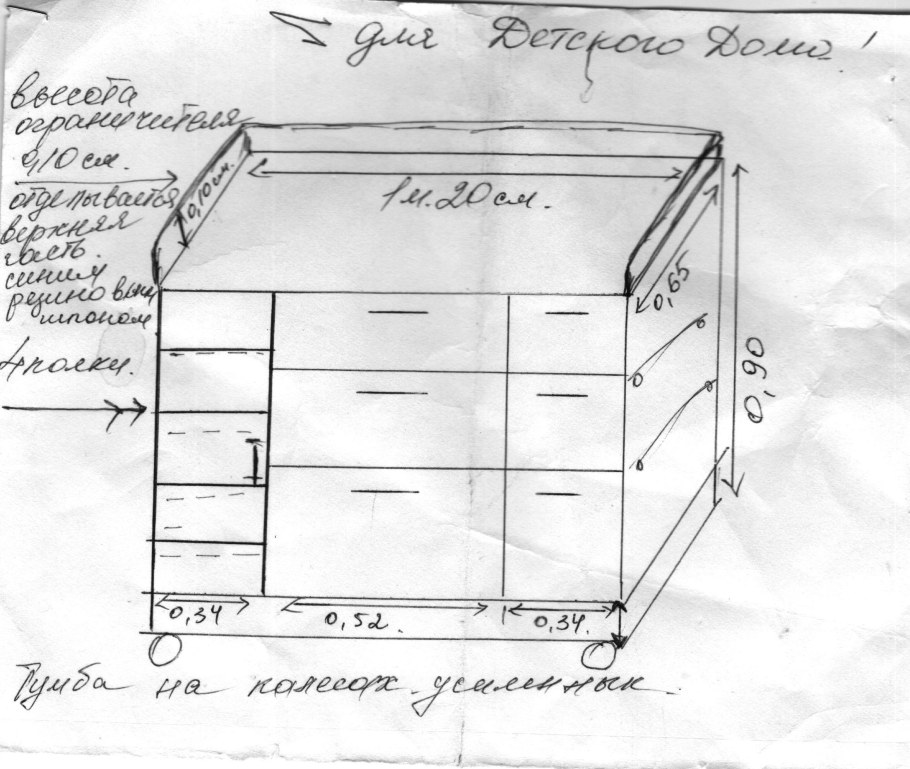 для Детского Дома!
высота
ограничителя
0,10 см.
отделывается
верхняя
часть
синим
резиновым
шпоном
4 полки.
0,10см.
1 м. 20 см.
0,65
0,90
0,34
0,52.
0,34.
Тумба на колесах усиленных.